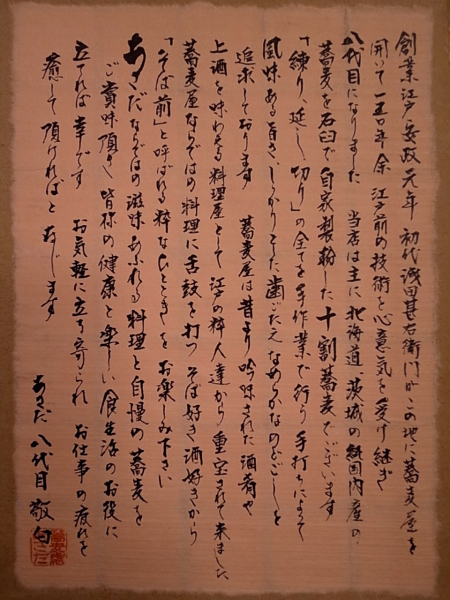 創業江戸安政元年 初代浅田甚右衛門がこの地に蕎麦屋を
開いて一五〇年余 江戸前の技術と心意気を受け継ぎ
八代目になりました 当店は主に北海道 茨城の純国内産の
蕎麦を石臼で自家製粉した十割蕎麦でございます
「練り、延し、切り」の全てを手作業で行う手打ちによって
風味ある旨さ、しっかりとした歯ごたえなめらかなのどごしを
追求しております 蕎麦屋は昔より吟味された酒肴や
上酒を味わえる料理屋として江戸の粋人達から重宝されて来ました
蕎麦屋ならではの料理に舌鼓を打つ そば好き酒好きから
「そば前」と呼ばれる粋なひとときを お楽しみ下さい
あさだならではの滋味あふれる料理と自慢の蕎麦を
ご賞味頂き 皆様の健康と楽しい食生活のお役に
立てれば幸です お気軽に立ち寄られ お仕事の疲れを
癒して頂ければと存じます
あさだ 八代目 敬白